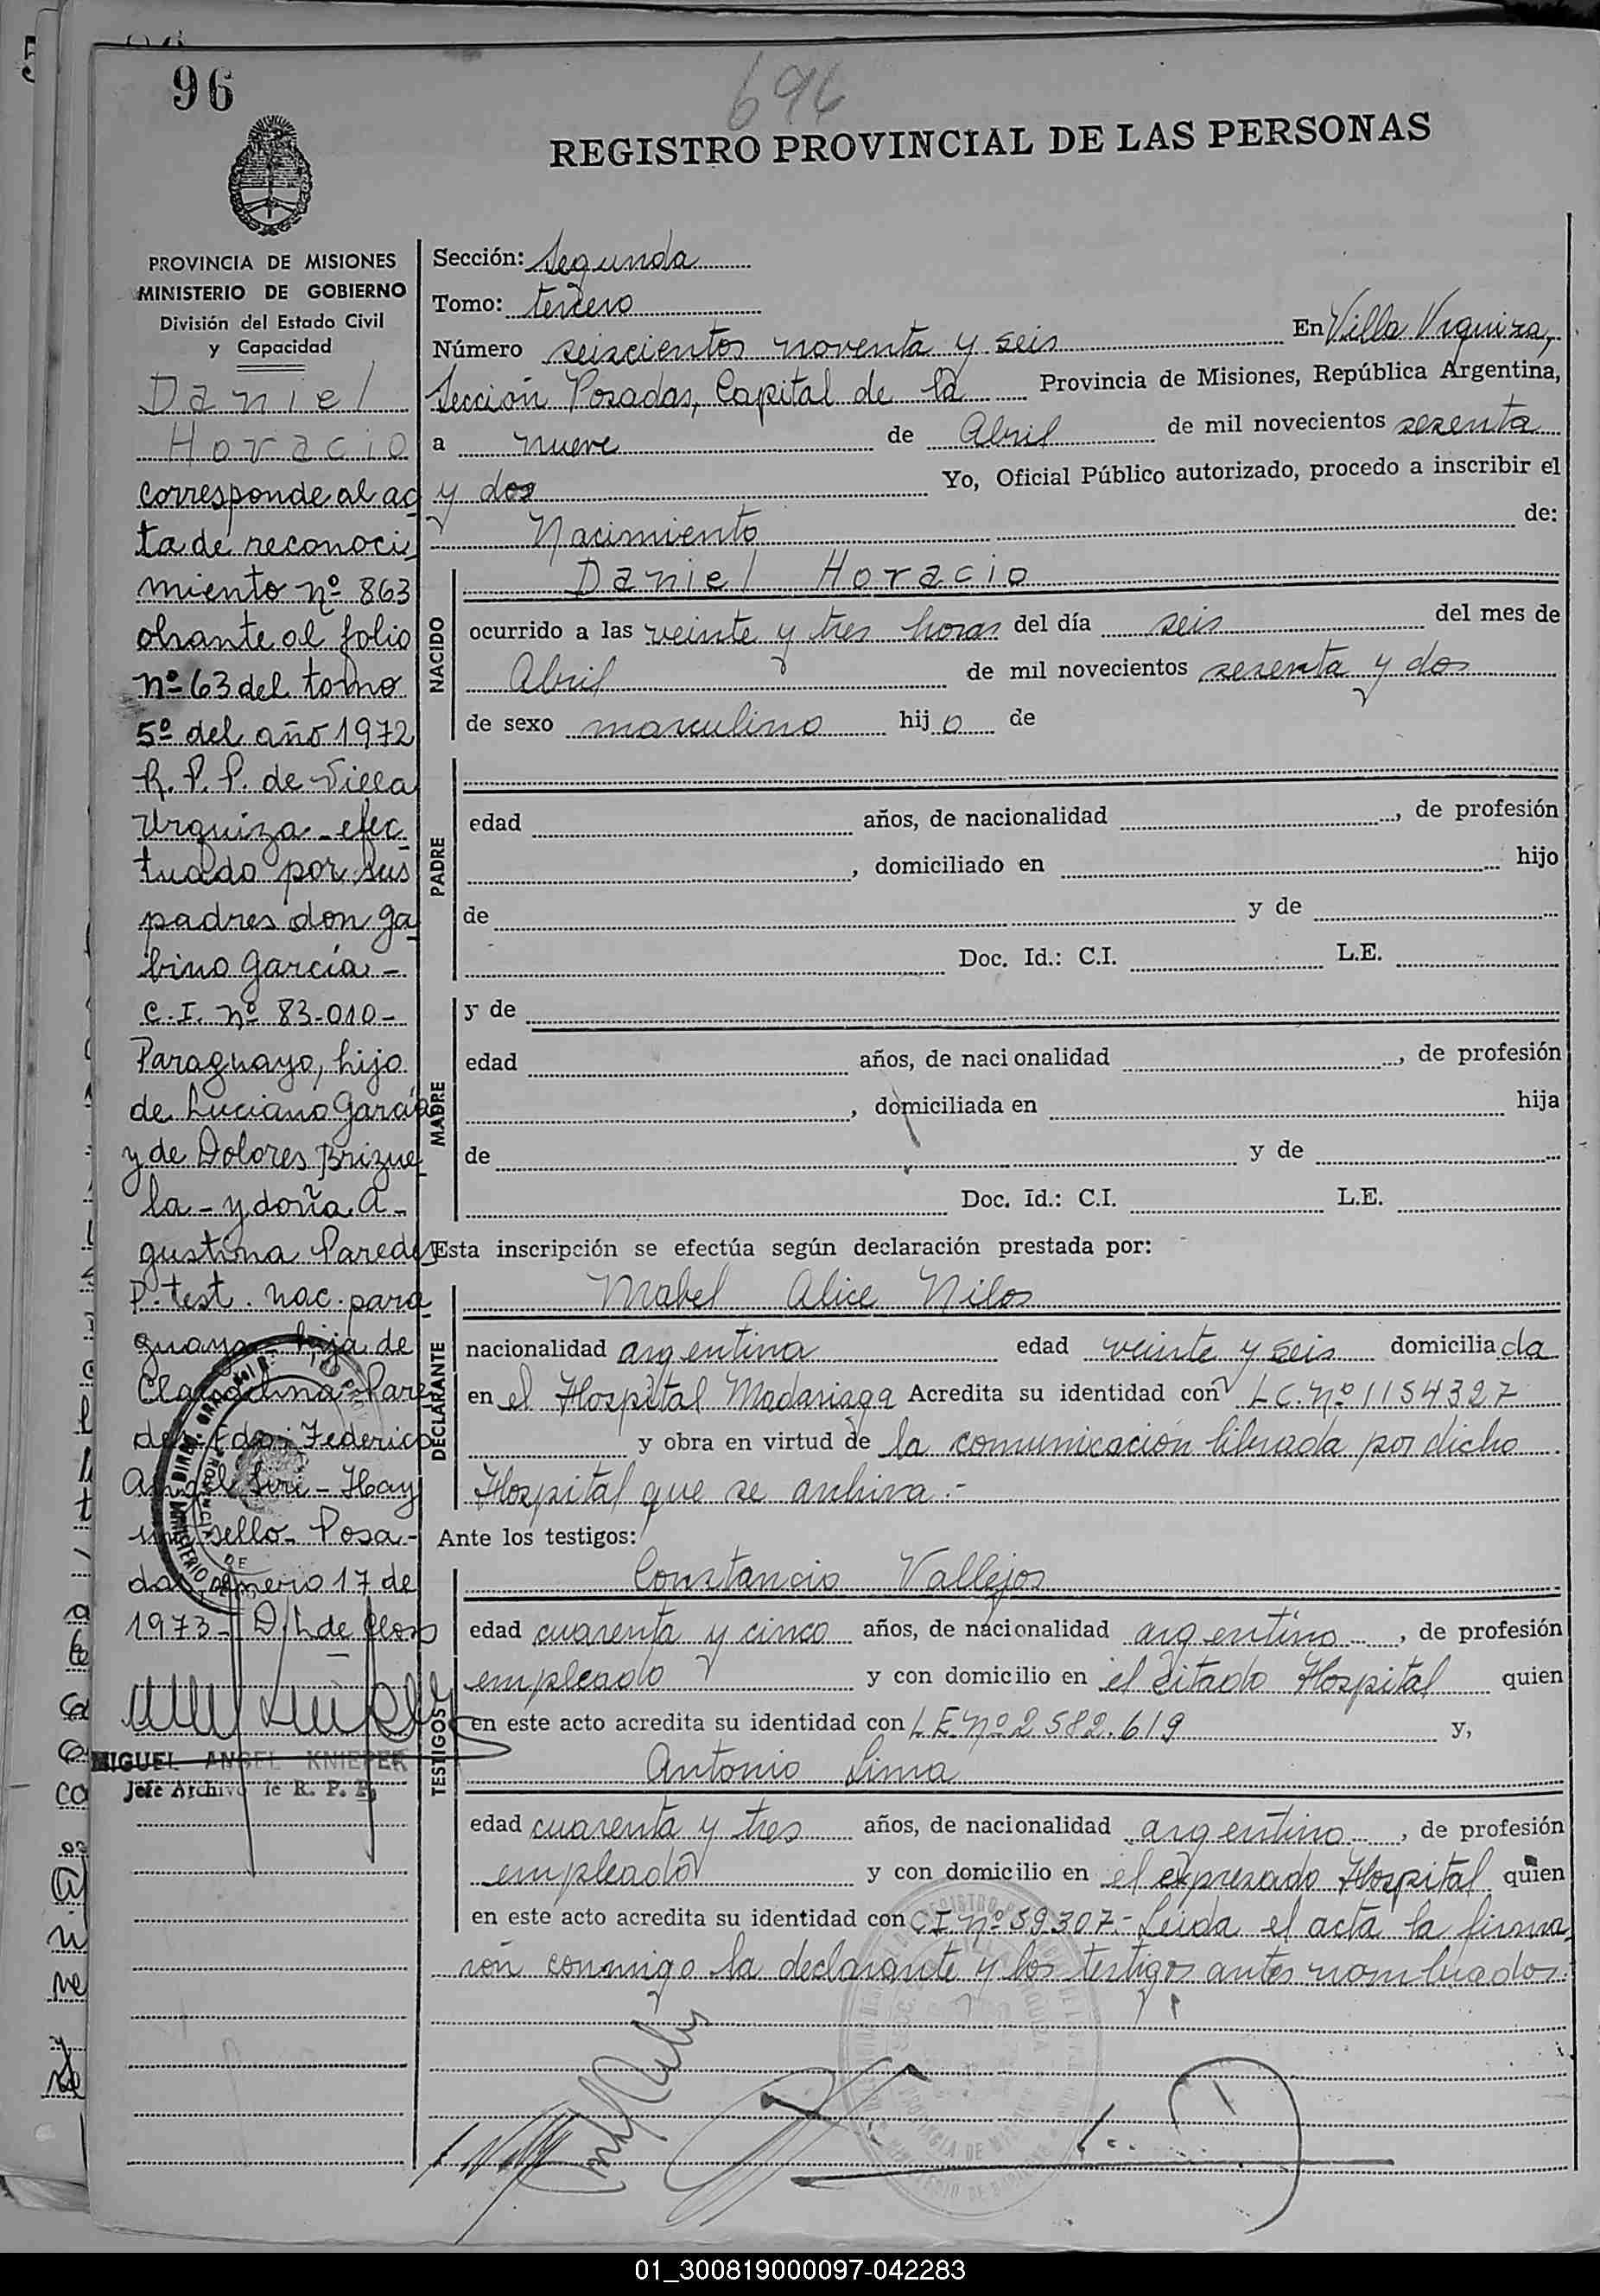 96
696
REGISTRO PROVINCIAL DE LAS PERSONAS
PROVINCIA DE MISIONES
MINISTERIO DE GOBIERNO
División del Estado Civil
y Capacidad
Daniel
Horacio
corresponde al ac
ta de reconoci
miento nº 863
obrante al folio
nº 63 del tomo
5º del año 1972
R. P. P. de Villa
Urquiza - efec
tuado por sus
padres don Ga
bino García -
C. I. nº 83-010-
Paraguayo, hijo
de Luciano García
y de Dolores Brizue
la - y doña A-
gustina Paredes
P. test. nac. para
guaya - hija de
Pare
des Fdo: Federico
- Hay
un sello - Posa-
das, enero 17 de
1973 -
MIGUEL ANGEL KNIEPER
Jefe Archivo de R. P. P.
Sección: Segunda
Tomo: tercero
Número seiscientos noventa y seis En Villa Urquiza,
Sección Posadas, Capital de la Provincia de Misiones, República Argentina,
a nueve de Abril de mil novecientos sesenta
y dos Yo, Oficial Público autorizado, procedo a inscribir el
Nacimiento de:
NACIDO
Daniel Horacio
ocurrido a las veinte y tres horas del día seis del mes de
Abril de mil novecientos sesenta y dos
de sexo masculino hijo de
PADRE
edad años, de nacionalidad , de profesión
, domiciliado en hijo
de y de
Doc. Id.: C.I. L.E.
MADRE
y de
edad años, de naci onalidad , de profesión
, domiciliada en hija
de y de
Doc. Id.: C.I. L.E.
Esta inscripción se efectúa según declaración prestada por:
DECLARANTE
Mabel Alice Nilos
nacionalidad argentina edad veinte y seis domiciliada
en el Hospital Madariaga Acredita su identidad con L.C. Nº 1154327
y obra en virtud de la comunicación librada por dicho
Hospital que se archiva.-
Ante los testigos:
TESTIGOS
Constancio Vallejos
edad cuarenta y cinco años, de nacionalidad argentino , de profesión
empleado y con domicilio en el citado Hospital quien
en este acto acredita su identidad con L.E. Nº 2.582.619 y,
Antonio Lima
edad cuarenta y tres años, de nacionalidad argentino , de profesión
empleado y con domicilio en el expresado Hospital quien
en este acto acredita su identidad con C I Nº 59307.- Leida el acta la firma
ron conmigo la declarante y los testigos antes nombrados.
01_300819000097-042283